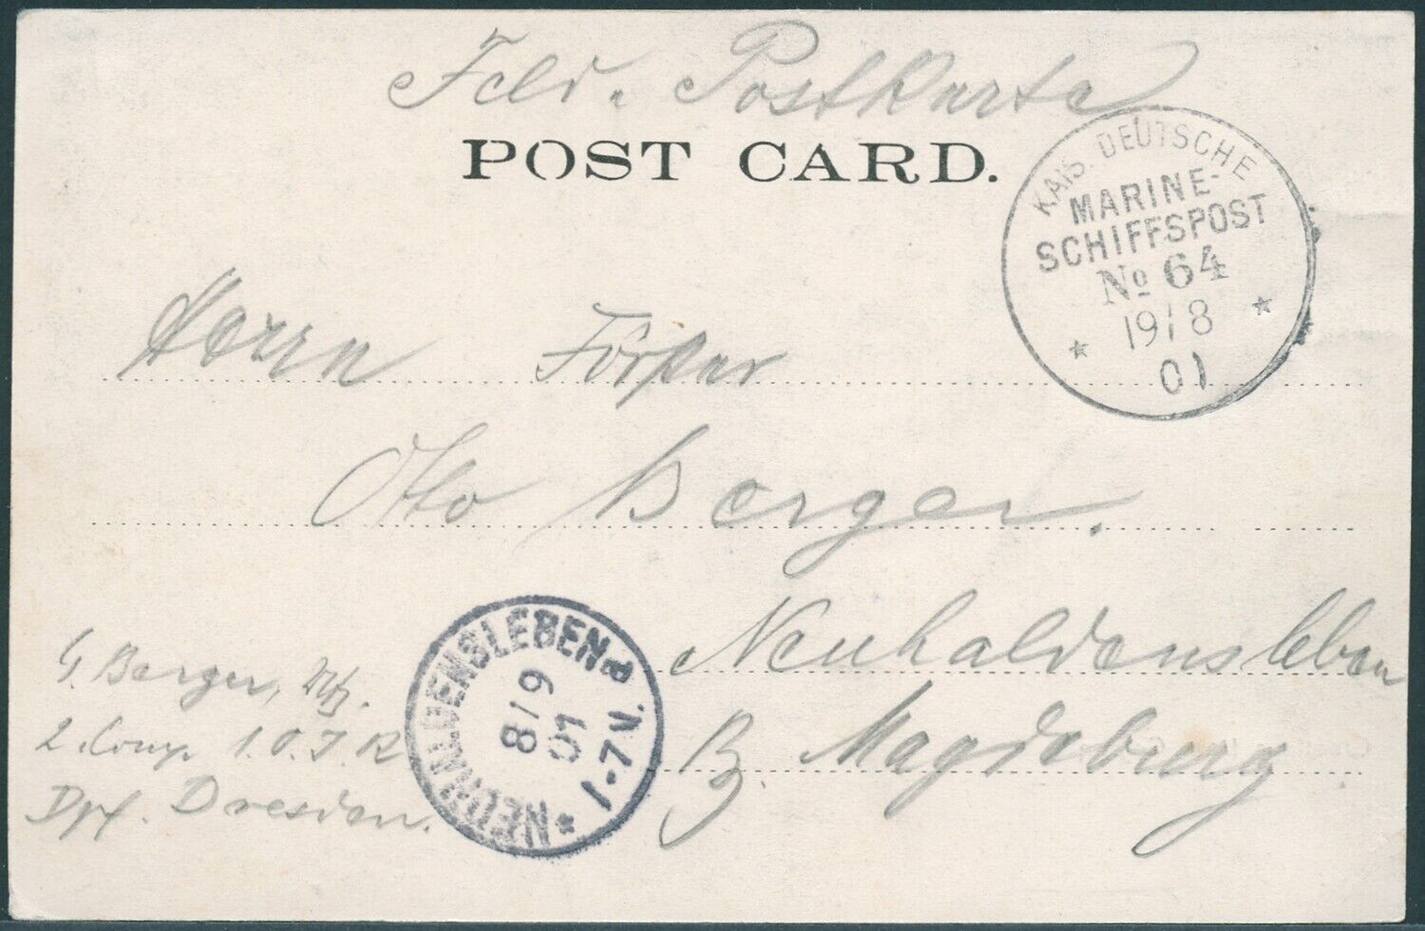 Feld. Postkarte
POST CARD.
KAIS. DEUTSCHE
MARINE-
SCHIFFSPOST
No 64
19/8
01
Herrn
Otto Berger.
Neuhaldensleben
B. Magdeburg
NEUHALDENSLEBEN
8/9
01
1-7V.
G. Berger,
2. Comp. 1. O. J. R
Dpf. Dresden.